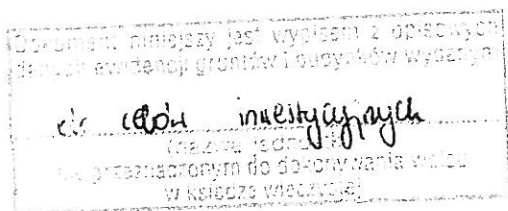 Dokument niniejszy jest wypisem z opisowych
danych ewidencji gruntów i budynków wydanym
do celów inwestycyjnych
(nazwa jednostki)
nie przeznaczonym do dokonywania wpisu
w księdze wieczystej